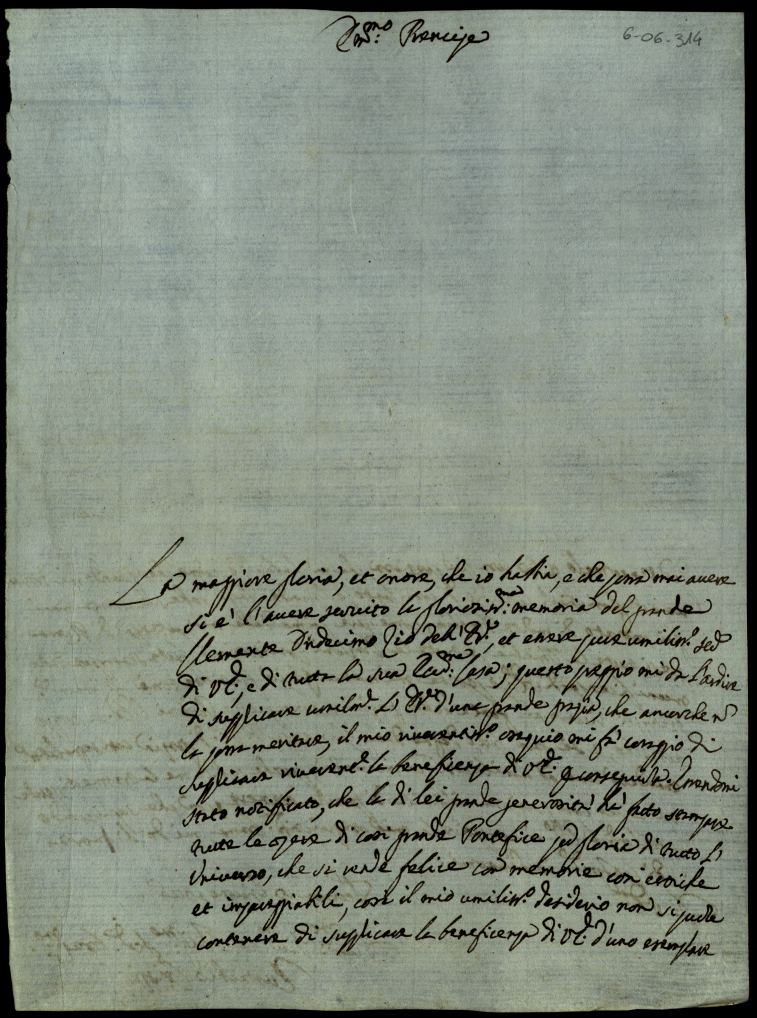 Em.mo Prencipe
6-06-314
La maggiore gloria, et onore, che io habbia, e che possa mai avere
si è l'avere servito la gloriosis.ma memoria del grande
Clemente Undecimo Zio dell' et essere pure umilis.o
di V.E., e di tutta la sua Ecc.ma Casa; questo preggio mi da l'ardire
di supplicare umilm.e d'una grande grazia, che ancorche n
la possa meritare, il mio riverentis.o ossequio mi fà coraggio di
supplicare riverent.e la beneficenza di V.E. p conseguirla. Essendomi
stato notificato, che la di lei grande generosità hà fatto stampare
tutte le opere di così grande Pontefice p gloria di tutto l'
Universo, che si rende felice con memorie così eroiche
et impareggiabili, così il mio umilis.o desiderio non si puole
contenere di supplicare la beneficenza di V.E. d'uno esemplare